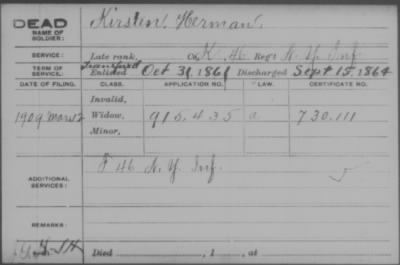 DEAD
NAME OF SOLDIER: Kirsten, Herman.
SERVICE: Late rank, Co. K, 46 Reg't N. Y. Inf.
TERM OF SERVICE: Enlisted Oct 31, 1861 Discharged Sept 15, 1864
DATE OF FILING. CLASS. APPLICATION NO. LAW. CERTIFICATE NO.
Invalid,
1909 Mar 12 Widow, 915.435 a 730.111
Minor,
ADDITIONAL SERVICES: F 46 N. Y. Inf.
REMARKS:
Died , 1 , at